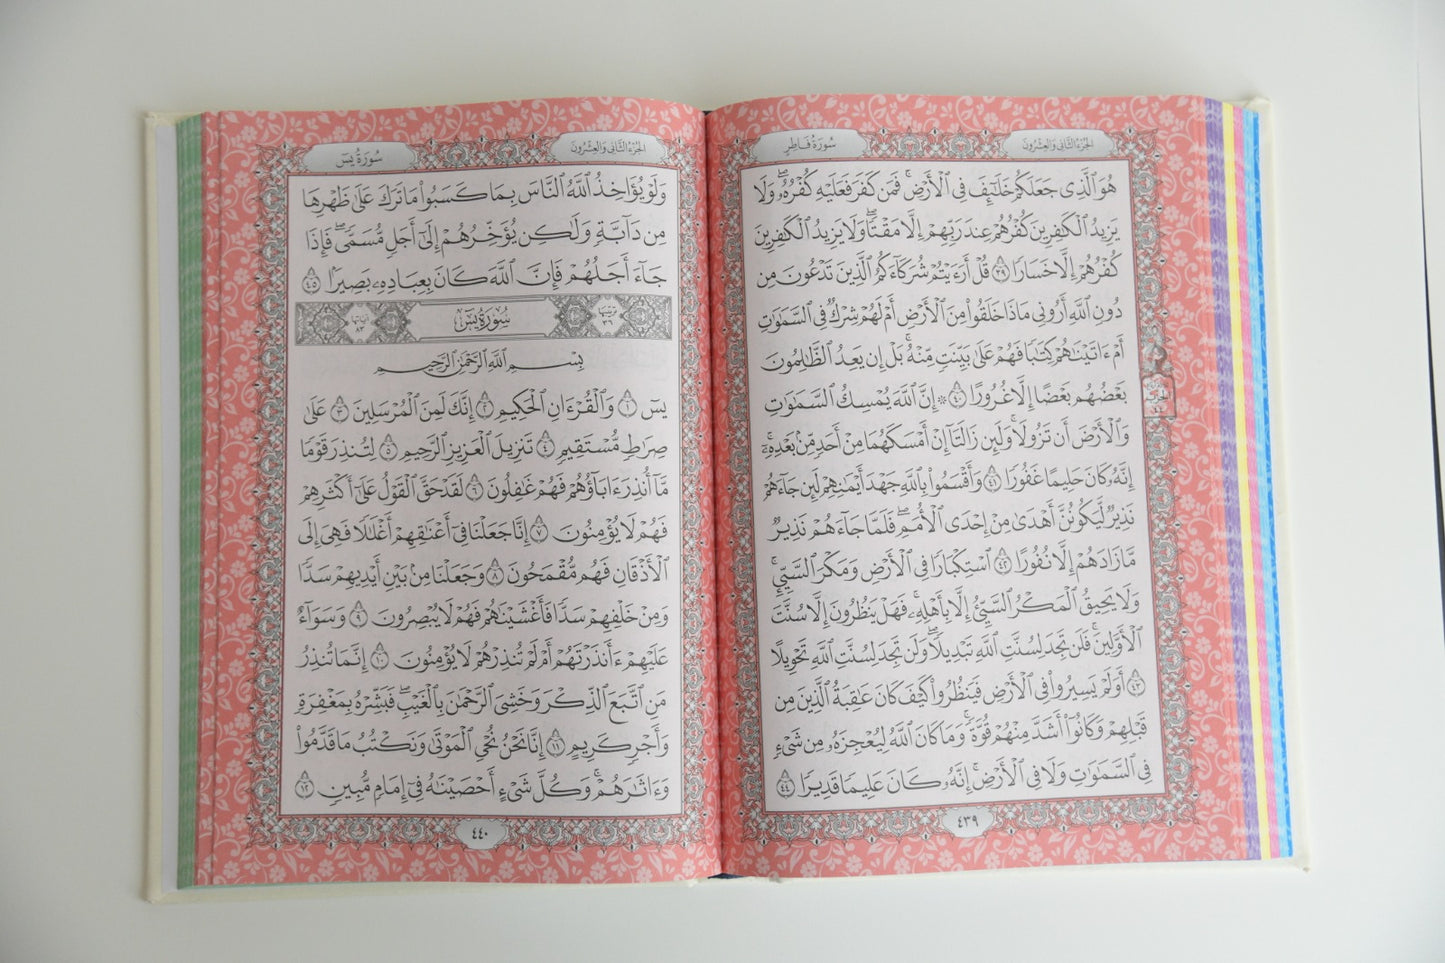 الجزء الثاني والعشرون
سورة فاطر
هُوَ ٱلَّذِى جَعَلَكُمْ خَلَٰٓئِفَ فِى ٱلْأَرْضِ ۚ فَمَن كَفَرَ فَعَلَيْهِ كُفْرُهُۥ ۖ وَلَا
يَزِيدُ ٱلْكَٰفِرِينَ كُفْرُهُمْ عِندَ رَبِّهِمْ إِلَّا مَقْتًا ۖ وَلَا يَزِيدُ ٱلْكَٰفِرِينَ
كُفْرُهُمْ إِلَّا خَسَارًا ٣٩ قُلْ أَرَءَيْتُمْ شُرَكَآءَكُمُ ٱلَّذِينَ تَدْعُونَ مِن
دُونِ ٱللَّهِ أَرُونِى مَاذَا خَلَقُوا۟ مِنَ ٱلْأَرْضِ أَمْ لَهُمْ شِرْكٌ فِى ٱلسَّمَٰوَٰتِ
أَمْ ءَاتَيْنَٰهُمْ كِتَٰبًا فَهُمْ عَلَىٰ بَيِّنَتٍ مِّنْهُ ۚ بَلْ إِن يَعِدُ ٱلظَّٰلِمُونَ
بَعْضُهُم بَعْضًا إِلَّا غُرُورًا ٤٠ ۞ إِنَّ ٱللَّهَ يُمْسِكُ ٱلسَّمَٰوَٰتِ
وَٱلْأَرْضَ أَن تَزُولَا ۚ وَلَئِن زَالَتَآ إِنْ أَمْسَكَهُمَا مِنْ أَحَدٍ مِّنۢ بَعْدِهِۦٓ ۚ
إِنَّهُۥ كَانَ حَلِيمًا غَفُورًا ٤١ وَأَقْسَمُوا۟ بِٱللَّهِ جَهْدَ أَيْمَٰنِهِمْ لَئِن جَآءَهُمْ
نَذِيرٌ لَّيَكُونُنَّ أَهْدَىٰ مِنْ إِحْدَى ٱلْأُمَمِ ۖ فَلَمَّا جَآءَهُمْ نَذِيرٌ
مَّا زَادَهُمْ إِلَّا نُفُورًا ٤٢ ٱسْتِكْبَارًا فِى ٱلْأَرْضِ وَمَكْرَ ٱلسَّيِّئِ ۚ
وَلَا يَحِيقُ ٱلْمَكْرُ ٱلسَّيِّئُ إِلَّا بِأَهْلِهِۦ ۚ فَهَلْ يَنظُرُونَ إِلَّا سُنَّتَ
ٱلْأَوَّلِينَ ۚ فَلَن تَجِدَ لِسُنَّتِ ٱللَّهِ تَبْدِيلًا ۖ وَلَن تَجِدَ لِسُنَّتِ ٱللَّهِ تَحْوِيلًا
٤٣ أَوَلَمْ يَسِيرُوا۟ فِى ٱلْأَرْضِ فَيَنظُرُوا۟ كَيْفَ كَانَ عَٰقِبَةُ ٱلَّذِينَ مِن
قَبْلِهِمْ وَكَانُوٓا۟ أَشَدَّ مِنْهُمْ قُوَّةً ۚ وَمَا كَانَ ٱللَّهُ لِيُعْجِزَهُۥ مِن شَىْءٍ
فِى ٱلسَّمَٰوَٰتِ وَلَا فِى ٱلْأَرْضِ ۚ إِنَّهُۥ كَانَ عَلِيمًا قَدِيرًا ٤٤
٤٣٩
الجزء الثاني والعشرون
سورة يس
وَلَوْ يُؤَاخِذُ ٱللَّهُ ٱلنَّاسَ بِمَا كَسَبُوا۟ مَا تَرَكَ عَلَىٰ ظَهْرِهَا
مِن دَآبَّةٍ وَلَٰكِن يُؤَخِّرُهُمْ إِلَىٰٓ أَجَلٍ مُّسَمًّى ۖ فَإِذَا
جَآءَ أَجَلُهُمْ فَإِنَّ ٱللَّهَ كَانَ بِعِبَادِهِۦ بَصِيرًۢا ٤٥
ترتيبها ٣٦ سُورَةُ يسٓ آياتها ٨٣
بِسْمِ ٱللَّهِ ٱلرَّحْمَٰنِ ٱلرَّحِيمِ
يسٓ ١ وَٱلْقُرْءَانِ ٱلْحَكِيمِ ٢ إِنَّكَ لَمِنَ ٱلْمُرْسَلِينَ ٣ عَلَىٰ
صِرَٰطٍ مُّسْتَقِيمٍ ٤ تَنزِيلَ ٱلْعَزِيزِ ٱلرَّحِيمِ ٥ لِتُنذِرَ قَوْمًا
مَّآ أُنذِرَ ءَابَآؤُهُمْ فَهُمْ غَٰفِلُونَ ٦ لَقَدْ حَقَّ ٱلْقَوْلُ عَلَىٰٓ أَكْثَرِهِمْ
فَهُمْ لَا يُؤْمِنُونَ ٧ إِنَّا جَعَلْنَا فِىٓ أَعْنَٰقِهِمْ أَغْلَٰلًا فَهِىَ إِلَى
ٱلْأَذْقَانِ فَهُم مُّقْمَحُونَ ٨ وَجَعَلْنَا مِنۢ بَيْنِ أَيْدِيهِمْ سَدًّا
وَمِنْ خَلْفِهِمْ سَدًّا فَأَغْشَيْنَٰهُمْ فَهُمْ لَا يُبْصِرُونَ ٩ وَسَوَآءٌ
عَلَيْهِمْ ءَأَنذَرْتَهُمْ أَمْ لَمْ تُنذِرْهُمْ لَا يُؤْمِنُونَ ١٠ إِنَّمَا تُنذِرُ
مَنِ ٱتَّبَعَ ٱلذِّكْرَ وَخَشِىَ ٱلرَّحْمَٰنَ بِٱلْغَيْبِ ۖ فَبَشِّرْهُ بِمَغْفِرَةٍ
وَأَجْرٍ كَرِيمٍ ١١ إِنَّا نَحْنُ نُحْىِ ٱلْمَوْتَىٰ وَنَكْتُبُ مَا قَدَّمُوا۟
وَءَاثَٰرَهُمْ ۚ وَكُلَّ شَىْءٍ أَحْصَيْنَٰهُ فِىٓ إِمَامٍ مُّبِينٍ ١٢
٤٤٠